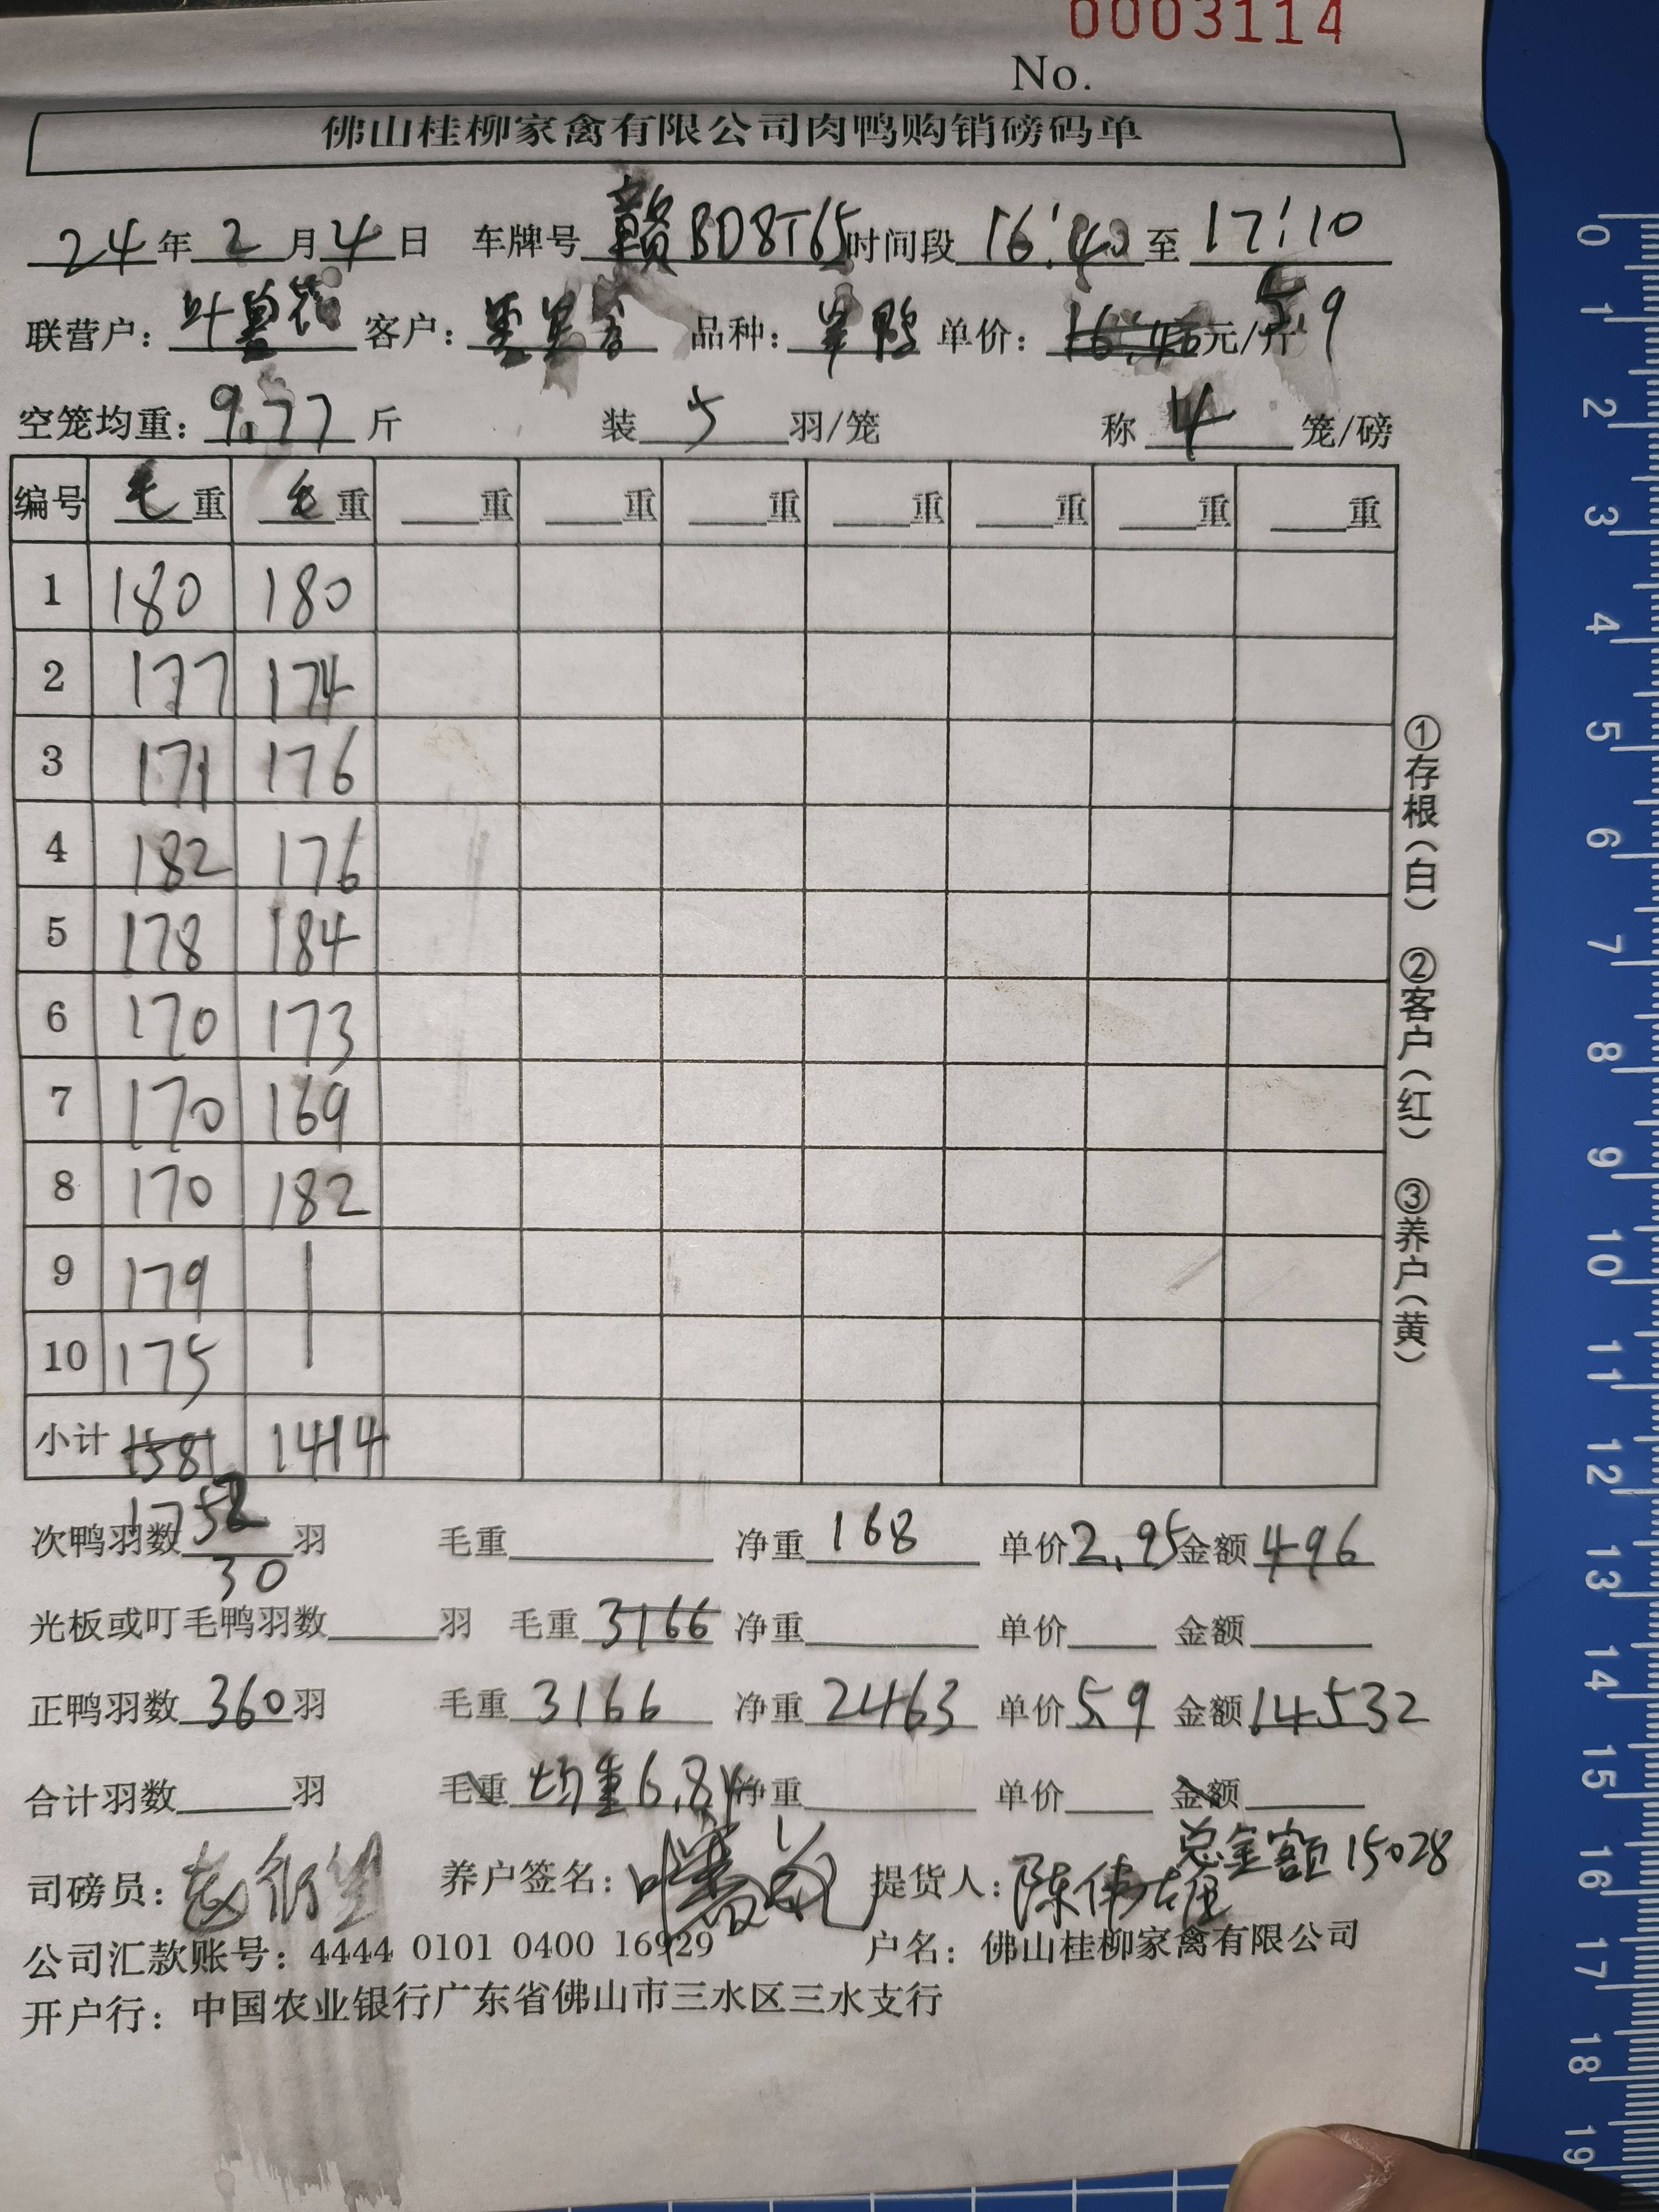 0003114
No.
佛山桂柳家禽有限公司肉鸭购销磅码单
24年2月4日 车牌号 赣BD8T65 时间段 16:40 至 17:10
联营户: 叶 客户: 品种: 鸭 单价: 16.46 元/斤 5.9
空笼均重: 9.77 斤 装 5 羽/笼 称 4 笼/磅
编号 毛重 毛重 重 重 重 重 重 重 重
1 180 180
2 177 174
3 171 176
4 182 176
5 178 184
6 170 173
7 170 169
8 170 182
9 179
10 175
小计 1581 1414
1752
次鸭羽数 30 羽 毛重 净重 168 单价 2.95 金额 496
光板或叮毛鸭羽数 羽 毛重 3166 净重 单价 金额
正鸭羽数 360 羽 毛重 3166 净重 2463 单价 5.9 金额 14532
合计羽数 羽 毛重 均重6.84 净重 单价 金额
总金额15028
司磅员: 养户签名: 叶 提货人: 陈伟雄
公司汇款账号: 4444 0101 0400 16929 户名: 佛山桂柳家禽有限公司
开户行: 中国农业银行广东省佛山市三水区三水支行
①存根(白) ②客户(红) ③养户(黄)
0 1 2 3 4 5 6 7 8 9 10 11 12 13 14 15 16 17 18 19